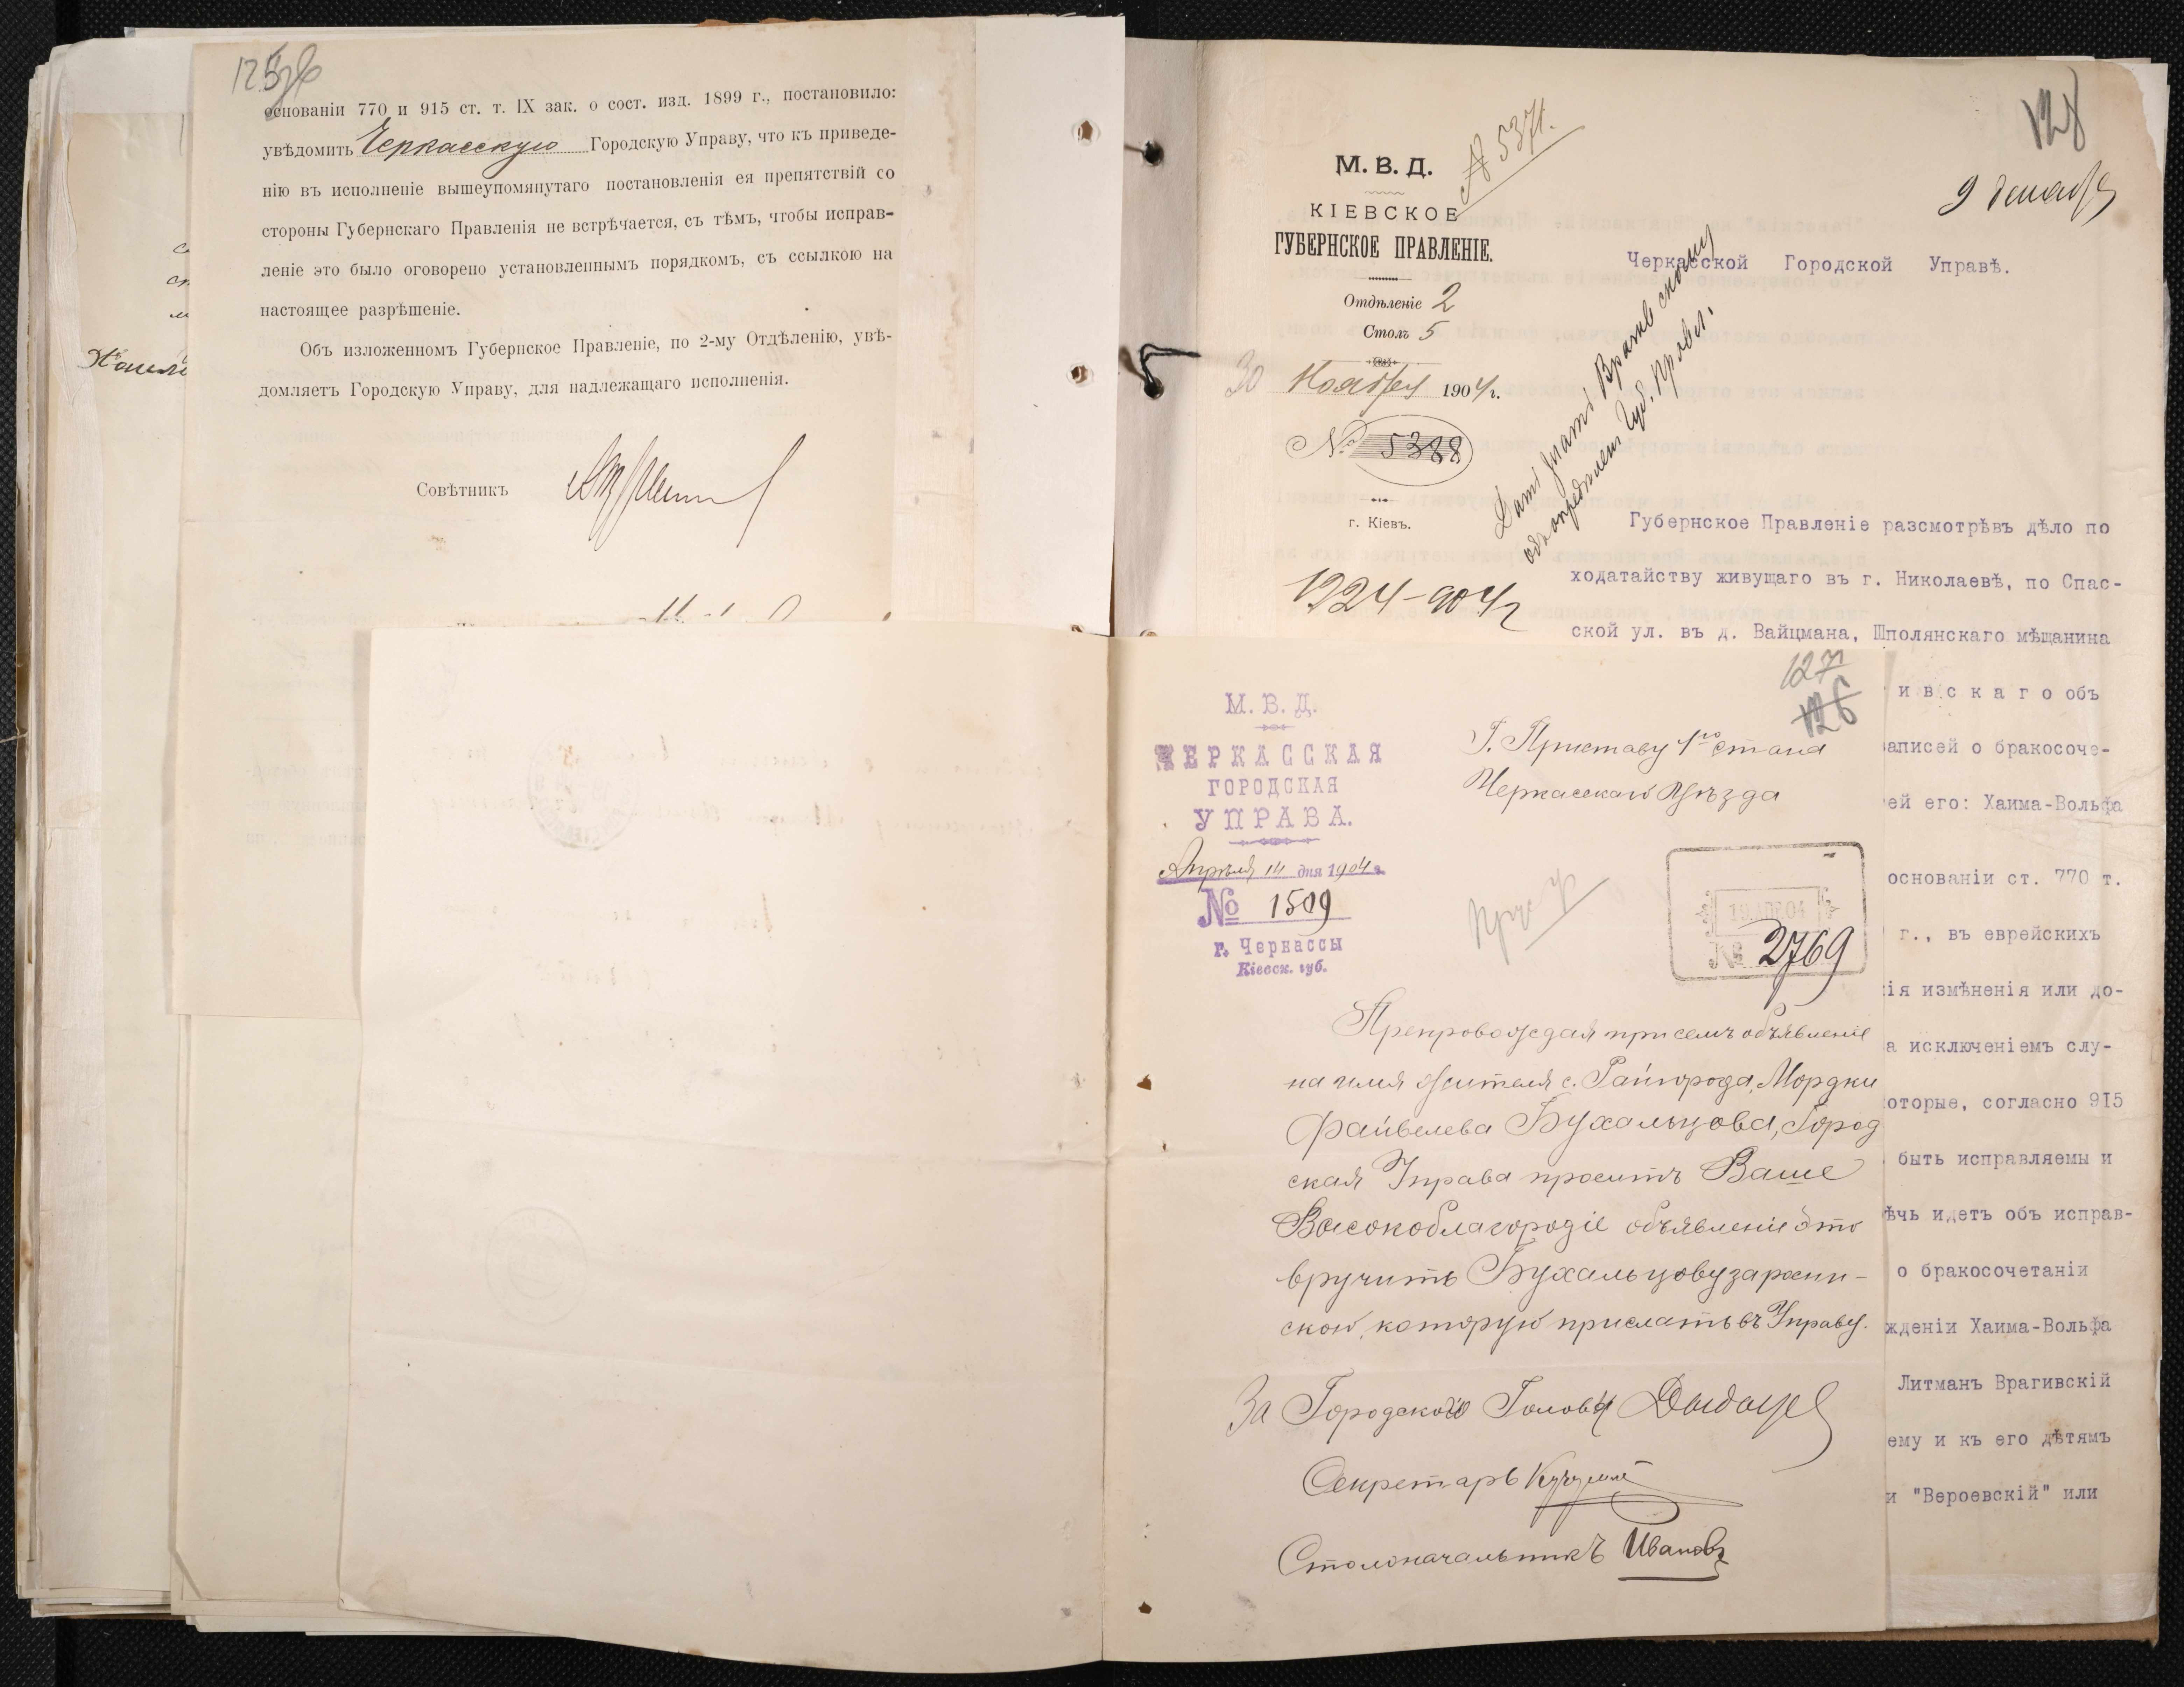 125об
основаніи 770 и 915 ст. т. IX зак. о сост. изд. 1899 г., постановило:
увѣдомить Черкасскую Городскую Управу, что къ приведе-
нію въ исполненіе вышеупомянутаго постановленія ея препятствій со
стороны Губернскаго Правленія не встрѣчается, съ тѣмъ, чтобы исправ-
леніе это было оговорено установленнымъ порядкомъ, съ ссылкою на
настоящее разрѣшеніе.
Объ изложенномъ Губернское Правленіе, по 2-му Отдѣленію, увѣ-
домляетъ Городскую Управу, для надлежащаго исполненія.
Совѣтникъ
128
№ 5371.
М. В. Д.
КІЕВСКОЕ
ГУБЕРНСКОЕ ПРАВЛЕНІЕ.
Отдѣленіе 2
Столъ 5
30 Ноября 1904 г.
№ 5388
г. Кіевъ.
1224-904 г
9 декабря
Черкасской Городской Управѣ.
Дать знать Врагивскому
объ опредѣлен. Губ. Правл.
Губернское Правленіе разсмотрѣвъ дѣло по
ходатайству живущаго въ г. Николаевѣ, по Спас-
ской ул. въ д. Вайцмана, Шполянскаго мѣщанина
и в с к а г о объ
записей о бракосоче-
ей его: Хаима-Вольфа
основаніи ст. 770 т.
г., въ еврейскихъ
ія измѣненія или до-
а исключеніемъ слу-
которые, согласно 915
быть исправляемы и
ѣчь идетъ объ исправ-
о бракосочетаніи
жденіи Хаима-Вольфа
Литманъ Врагивскій
ему и къ его дѣтямъ
и "Вероевскій" или
127
126
М. В. Д.
ЧЕРКАССКАЯ
ГОРОДСКАЯ
УПРАВА.
Апрѣля 14 дня 1904 г.
№ 1509
г. Черкассы
Кіевск. губ.
Г. Приставу 1го стана
Черкасскаго Уѣзда
19 АПР. 04
№ 2769
Препровождая при семъ объявленіе
на имя жителя с. Райгорода, Мордки
Файвелева Бухальцова, Город
ская Управа проситъ Ваше
Высокоблагородіе объявленіе это
вручить Бухальцову за распи-
скою, которую прислать въ Управу.
За Городского Голову
Секретарь
Столоначальникъ Ивановъ